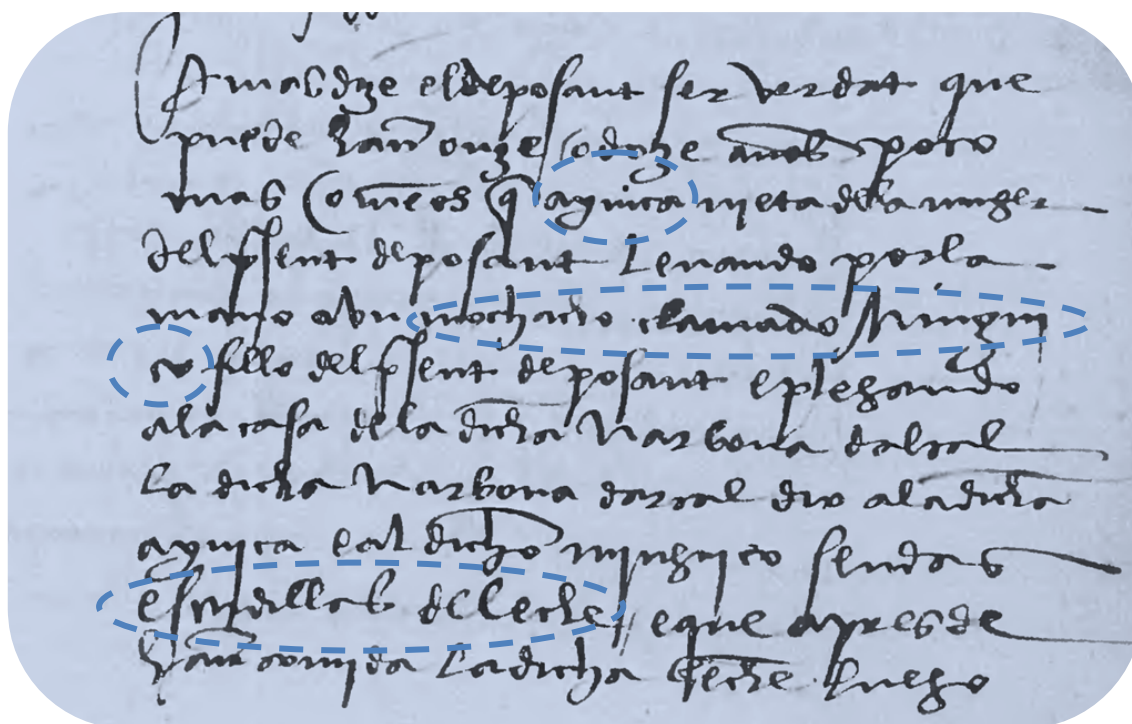 A mas dize el deposant ser verdat que
puede hauer onze o doze anos poco
mas o menos q aynica nieta dela muger
del psent deposant leuando por la
mano a vn mochacho clamado Mingui
co fillo del psent deposant e plegando
ala casa dela dicha Narbona dalral
la dicha Narbona darral dio ala dicha
aynica e al dicho minguico sendas
escudillas de leche e que apres de
hauer comida la dicha leche luego